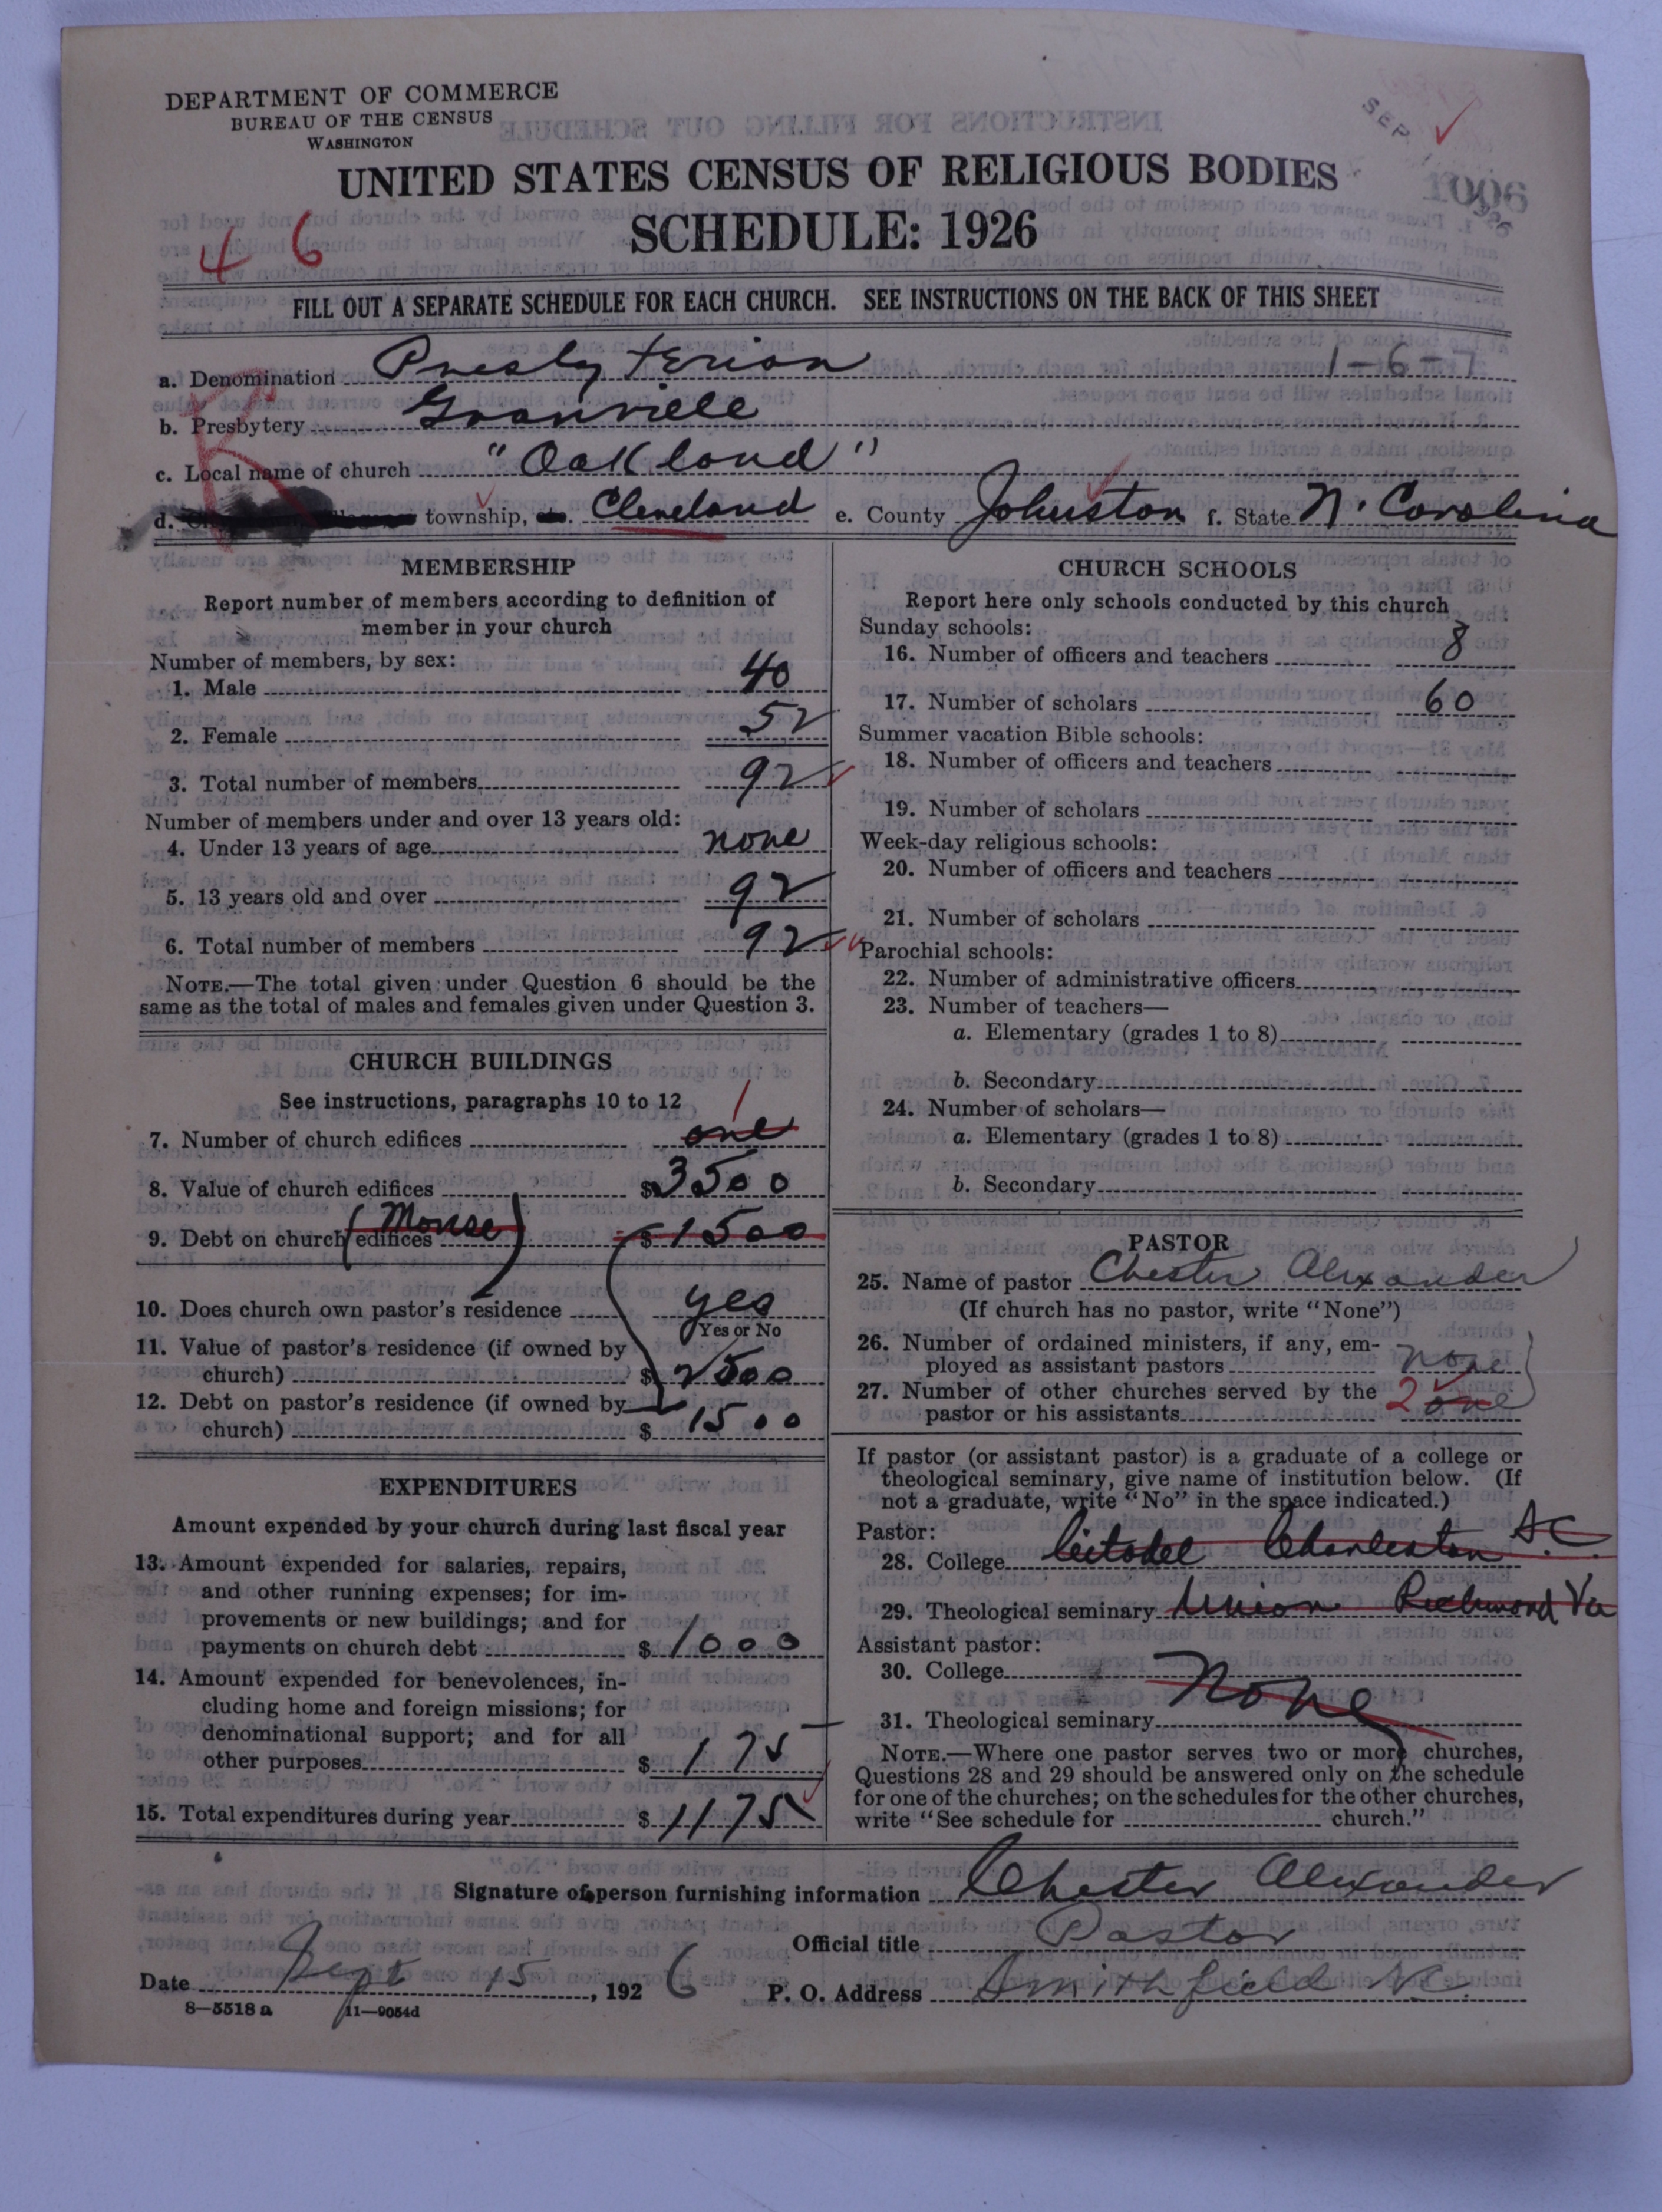 DEPARTMENT OF COMMERCE
BUREAU OF THE CENSUS
WASHINGTON
SEP
UNITED STATES CENSUS OF RELIGIOUS BODIES
SCHEDULE: 1926
4 6
FILL OUT A SEPARATE SCHEDULE FOR EACH CHURCH. SEE INSTRUCTIONS ON THE BACK OF THIS SHEET
a. Denomination Presbyterian 1-6-7
b. Presbytery Granville
c. Local name of church "Oakland"
d. township, Cleveland e. County Johnston f. State N. Carolina
MEMBERSHIP
Report number of members according to definition of
member in your church
Number of members, by sex:
1. Male 40
2. Female 52
3. Total number of members 92
Number of members under and over 13 years old:
4. Under 13 years of age none
5. 13 years old and over 92
6. Total number of members 92
NOTE.—The total given under Question 6 should be the
same as the total of males and females given under Question 3.
CHURCH BUILDINGS
See instructions, paragraphs 10 to 12
1
7. Number of church edifices one
8. Value of church edifices $ 3500
(Manse)
9. Debt on church edifices $ 1500
10. Does church own pastor's residence yes
Yes or No
11. Value of pastor's residence (if owned by
church) $ 2500
12. Debt on pastor's residence (if owned by
church) $ 1500
EXPENDITURES
Amount expended by your church during last fiscal year
13. Amount expended for salaries, repairs,
and other running expenses; for im-
provements or new buildings; and for
payments on church debt $ 1000
14. Amount expended for benevolences, in-
cluding home and foreign missions; for
denominational support; and for all
other purposes $ 175
15. Total expenditures during year $ 1175
CHURCH SCHOOLS
Report here only schools conducted by this church
Sunday schools:
16. Number of officers and teachers 8
17. Number of scholars 60
Summer vacation Bible schools:
18. Number of officers and teachers
19. Number of scholars
Week-day religious schools:
20. Number of officers and teachers
21. Number of scholars
Parochial schools:
22. Number of administrative officers
23. Number of teachers—
a. Elementary (grades 1 to 8)
b. Secondary
24. Number of scholars—
a. Elementary (grades 1 to 8)
b. Secondary
PASTOR
25. Name of pastor Chester Alexander
(If church has no pastor, write "None")
26. Number of ordained ministers, if any, em-
ployed as assistant pastors none
27. Number of other churches served by the
pastor or his assistants 2 one
If pastor (or assistant pastor) is a graduate of a college or
theological seminary, give name of institution below. (If
not a graduate, write "No" in the space indicated.)
Pastor:
28. College Citadel Charleston S.C.
29. Theological seminary Union Richmond Va
Assistant pastor:
30. College
None
31. Theological seminary
NOTE.—Where one pastor serves two or more churches,
Questions 28 and 29 should be answered only on the schedule
for one of the churches; on the schedules for the other churches,
write "See schedule for church."
Signature of person furnishing information Chester Alexander
Official title Pastor
Date Sept 15, 1926 P. O. Address Smithfield N.C.
8—5518a 11—9054d